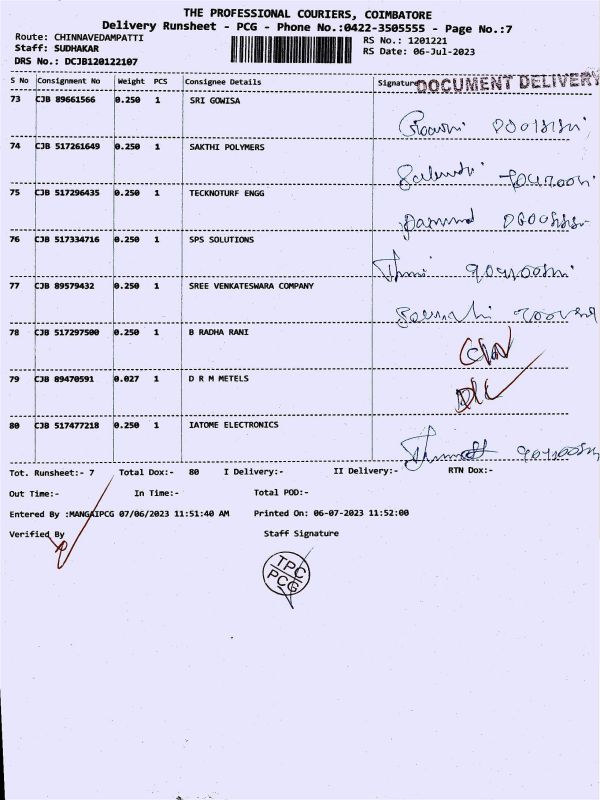 THE PROFESSIONAL COURIERS, COIMBATORE
Delivery Runsheet - PCG - Phone No.:0422-3505555 - Page No.:7
Route: CHINNAVEDAMPATTI RS No.: 1201221
Staff: SUDHAKAR RS Date: 06-Jul-2023
DRS No.: DCJB120122107
S No Consignment No Weight PCS Consignee Details Signature DOCUMENT DELIVERY
73 CJB 89661566 0.250 1 SRI GOWISA
74 CJB 517261649 0.250 1 SAKTHI POLYMERS
75 CJB 517296435 0.250 1 TECKNOTURF ENGG
76 CJB 517334716 0.250 1 SPS SOLUTIONS
77 CJB 89579432 0.250 1 SREE VENKATESWARA COMPANY
78 CJB 517297500 0.250 1 B RADHA RANI
79 CJB 89470591 0.027 1 D R M METELS
80 CJB 517477218 0.250 1 IATOME ELECTRONICS
Tot. Runsheet:- 7 Total Dox:- 80 I Delivery:- II Delivery:- RTN Dox:-
Out Time:- In Time:- Total POD:-
Entered By :MANGAIPCG 07/06/2023 11:51:40 AM Printed On: 06-07-2023 11:52:00
Verified By Staff Signature
TPC
PCG